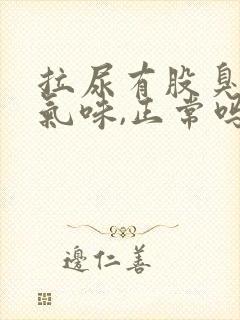 拉尿有股臭
氣味,正常嗎
邊仁善